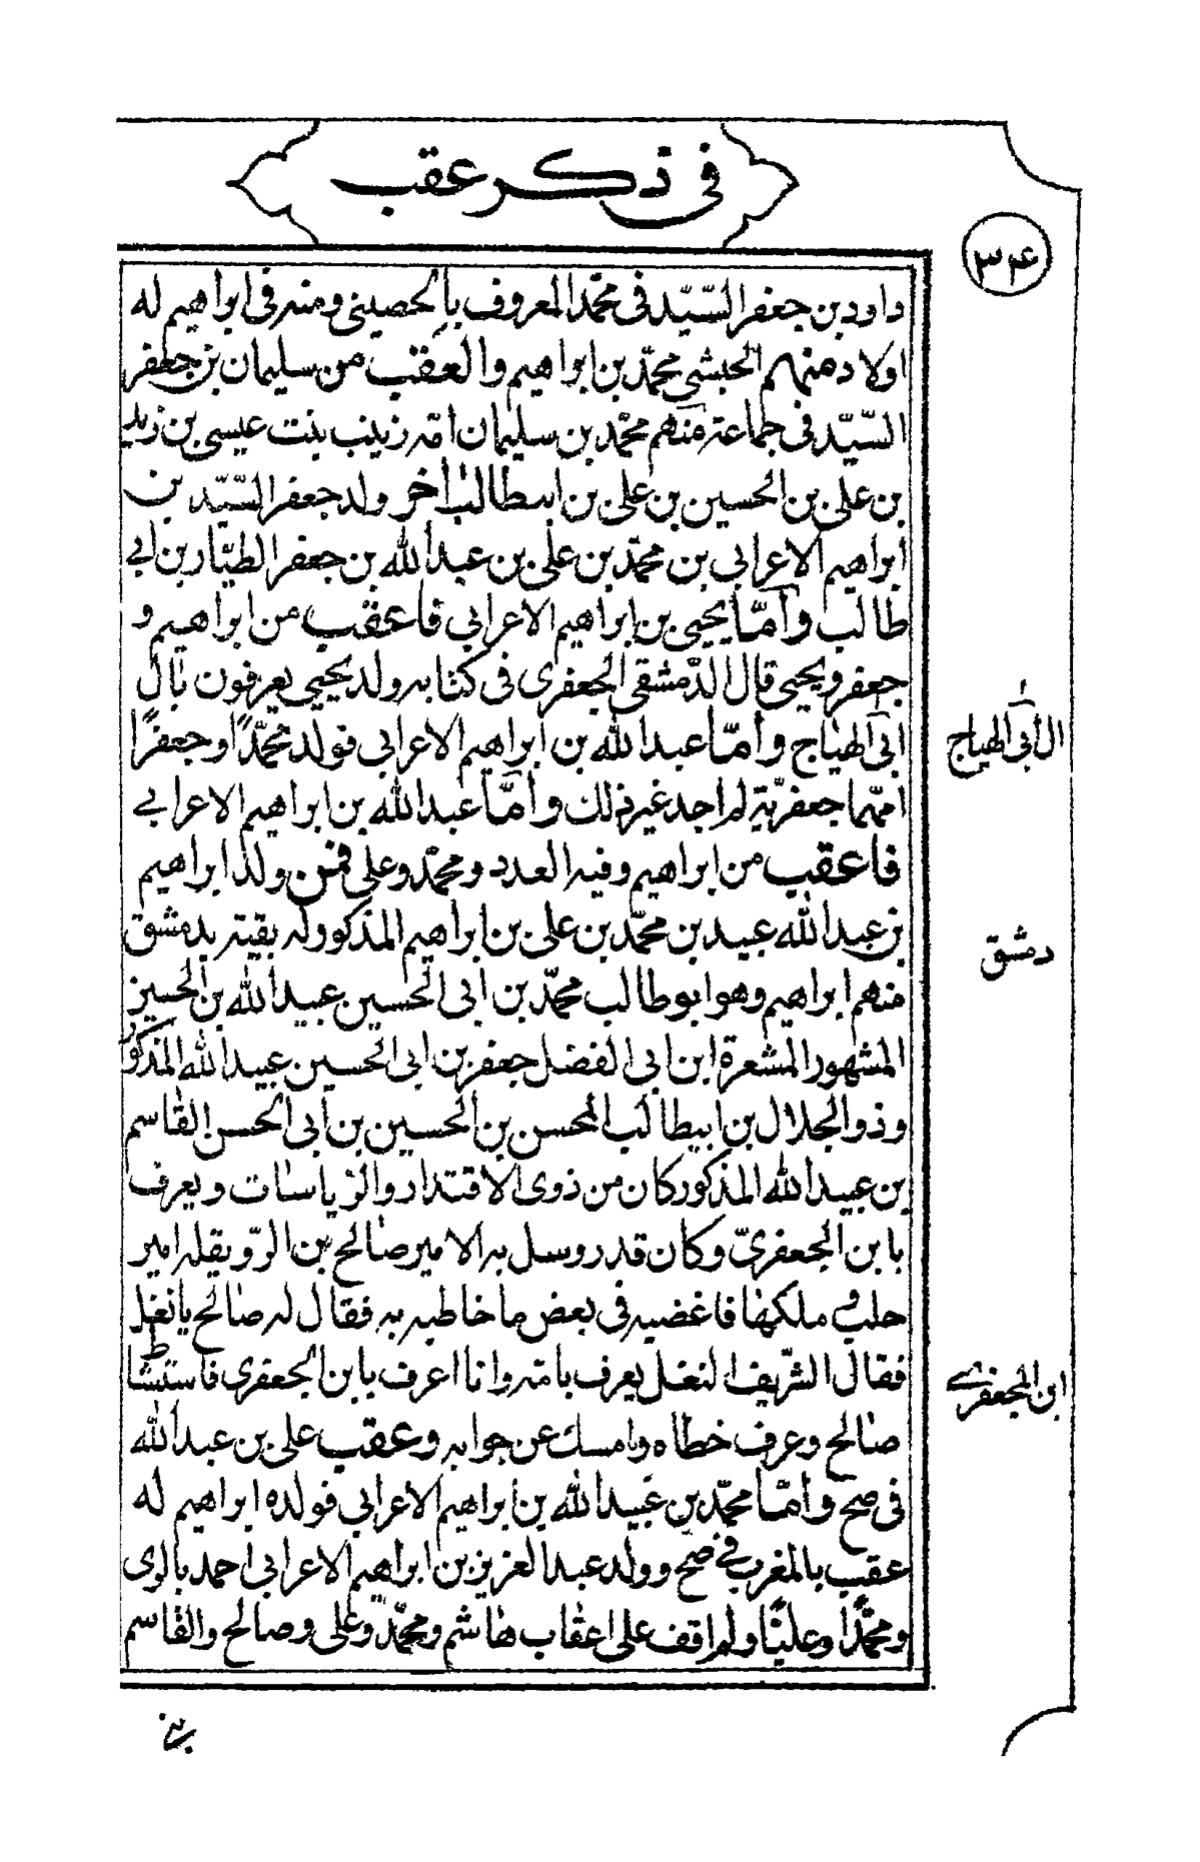 في ذكر عقب
٣٤
داود بن جعفر السّيّد في محمّد المعروف بالحصيني ومنه في ابراهيم له
اولاد منهم الحبشي محمّد بن ابراهيم والعقب من سليمان بن جعفر
السّيّد في جماعة منهم محمّد بن سليمان امّه زينب بنت عيسى بن زيد
بن علي بن الحسين بن علي بن ابيطالب اخر ولد جعفر السّيّد بن
ابراهيم الاعرابي بن محمّد بن علي بن عبد الله بن جعفر الطيّار بن ابي
طالب وامّا يحيى بن ابراهيم الاعرابي فاعقب من ابراهيم و
جعفر ويحيى قال الدّمشقي الجعفري في كتابه ولد يحيى يعرفون بال
ابي الهياج وامّا عبد الله بن ابراهيم الاعرابي فولد محمّدًا وجعفرًا
امّهما جعفريّة لم اجد غير ذلك وامّا عبد الله بن ابراهيم الاعرابي
ال ابي الهياج
فاعقب من ابراهيم وفيه العدد ومحمّد وعلي فمن ولد ابراهيم
بن عبد الله عبيد بن محمّد بن علي بن ابراهيم المذكور له بقيّة بدمشق
دمشق
منهم ابراهيم وهو ابو طالب محمّد بن ابي الحسين عبيد الله بن الحسين
المشهور المشعرة ابن ابي الفضل جعفر بن ابي الحسين عبيد الله المذكور
وذو الجلال بن ابيطالب المحسن بن الحسين بن ابي الحسن القاسم
بن عبيد الله المذكور كان من ذوي الاقتدار والرّياسات ويعرف
بابن الجعفريّ وكان قد روسل به الامير صالح بن الرّويقلة امير
حلب وملكها فاغضبه في بعض ما خاطبه به فقال له صالح يا نغل
فقال الشّريف النغل يعرف بامّه وانا اعرف بابن الجعفري فاستشاط
ابن الجعفري
صالح وعرف خطاه وامسك عن جوابه وعقب علي بن عبد الله
في صح وامّا محمّد بن عبيد الله بن ابراهيم الاعرابي فولده ابراهيم له
عقب بالمغرب في صح وولد عبد العزيز بن ابراهيم الاعرابي احمد بالري
ومحمّدًا وعليًّا ولم اقف على اعقاب هاشم ومحمّد وعلي وصالح والقاسم